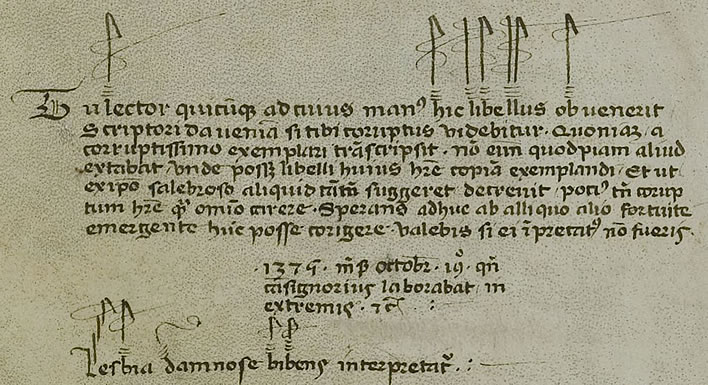 Tu lector quicūq; ad cuius manꝰ hic libellus obvenerit
Scriptori da veniā si tibi coruptus videbitur · Quoniaꝫ, a
corruptissimo exemplari trāscripsit · nō eīm quodpiam aliud
extabat, vnde possꝫ libelli huius hr̄e copiā exemplandi, Et ut
ex ip̄o salebroso aliquid tātū suggeret decrevit, pociꝰ tn̄ corup
tum hr̄e q̄ꝫ omīo carere · Sperans adhuc ab alliquo alio fortuite
emergente hūc posse corigere · valebis si ei īpretatꝰ nō fueris ·
· 1375 · mn̄s octobr · 19° · qn̄
cāsignorius laborabat, in
extremis · ⁊c̄ · :
Lesbia damnose bibens interpretat᷑ · : ·